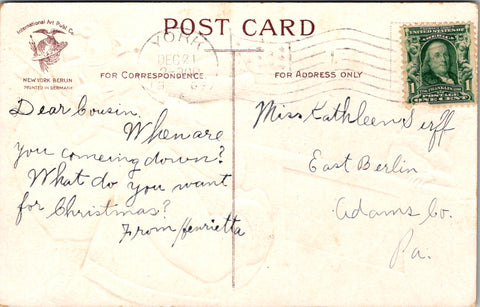 International Art Publ. Co.
NEW YORK BERLIN
PRINTED IN GERMANY
POST CARD
YORK
DEC 21
FOR CORRESPONDENCE
FOR ADDRESS ONLY
Dear Cousin,
When are
you comeing down?
What do you want
for Christmas?
From Henrietta
Miss Kathleen Serff
East Berlin
Adams Co.
Pa.
1
ONE CENT